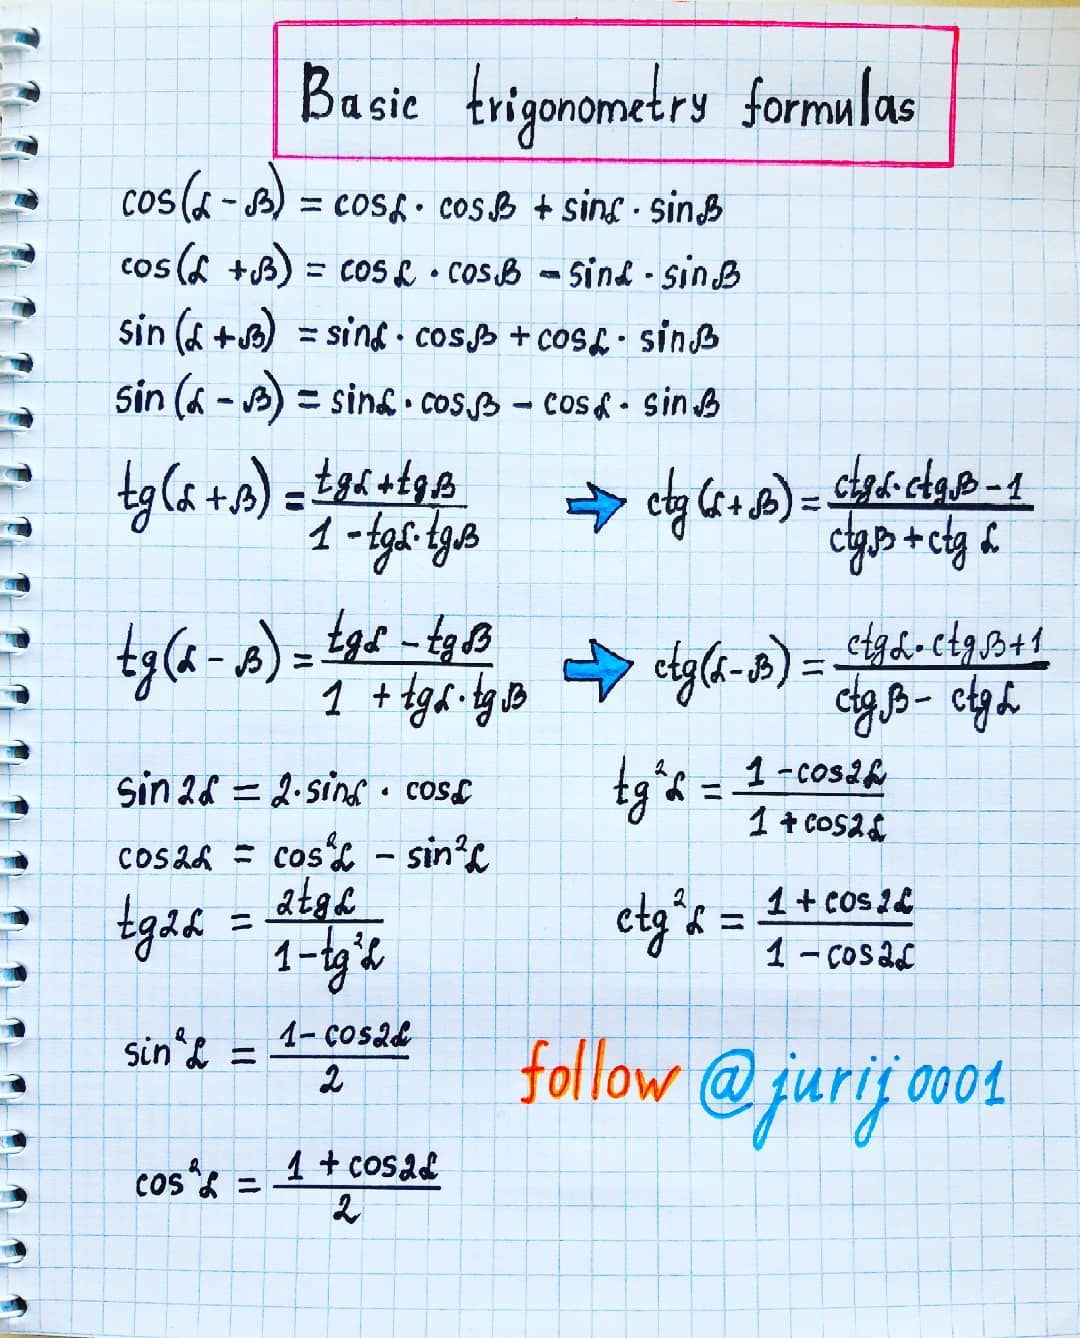 Basic trigonometry formulas
cos(α - β) = cosα · cosβ + sinα · sinβ
cos(α + β) = cosα · cosβ - sinα · sinβ
sin(α + β) = sinα · cosβ + cosα · sinβ
sin(α - β) = sinα · cosβ - cosα · sinβ
tg(α + β) = (tgα + tgβ) / (1 - tgα · tgβ) ➡ ctg(α + β) = (ctgα · ctgβ - 1) / (ctgβ + ctgα)
tg(α - β) = (tgα - tgβ) / (1 + tgα · tgβ) ➡ ctg(α - β) = (ctgα · ctgβ + 1) / (ctgβ - ctgα)
sin2α = 2 · sinα · cosα
tg²α = (1 - cos2α) / (1 + cos2α)
cos2α = cos²α - sin²α
tg2α = 2tgα / (1 - tg²α)
ctg²α = (1 + cos2α) / (1 - cos2α)
sin²α = (1 - cos2α) / 2
follow @jurij0001
cos²α = (1 + cos2α) / 2